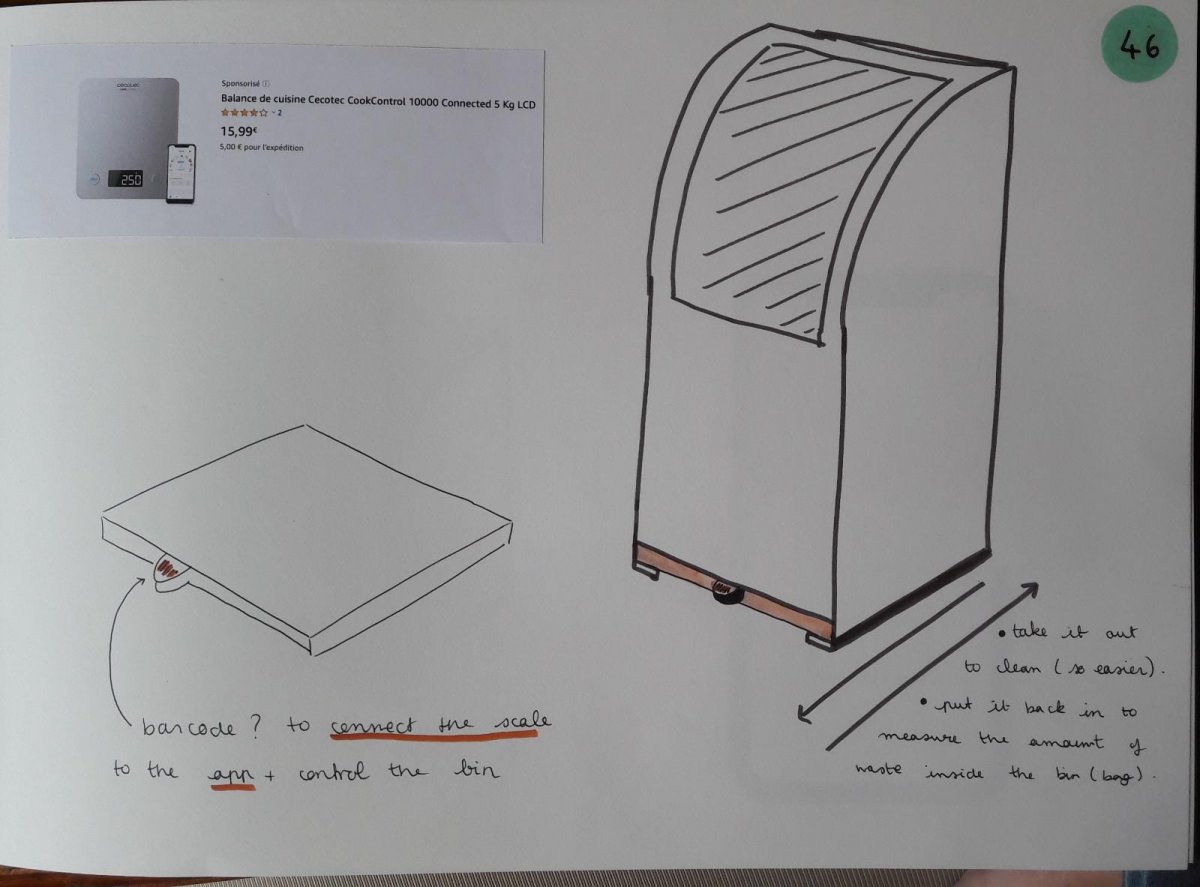 46
cecotec
Sponsorisé
Balance de cuisine Cecotec CookControl 10000 Connected 5 Kg LCD
2
15,99€
5,00 € pour l'expédition
250
barcode ? to connect the scale
to the app + control the bin
• take it out
to clean (so easier).
• put it back in to
measure the amount of
waste inside the bin (bag).